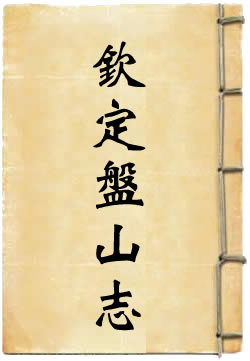 欽定盤山志